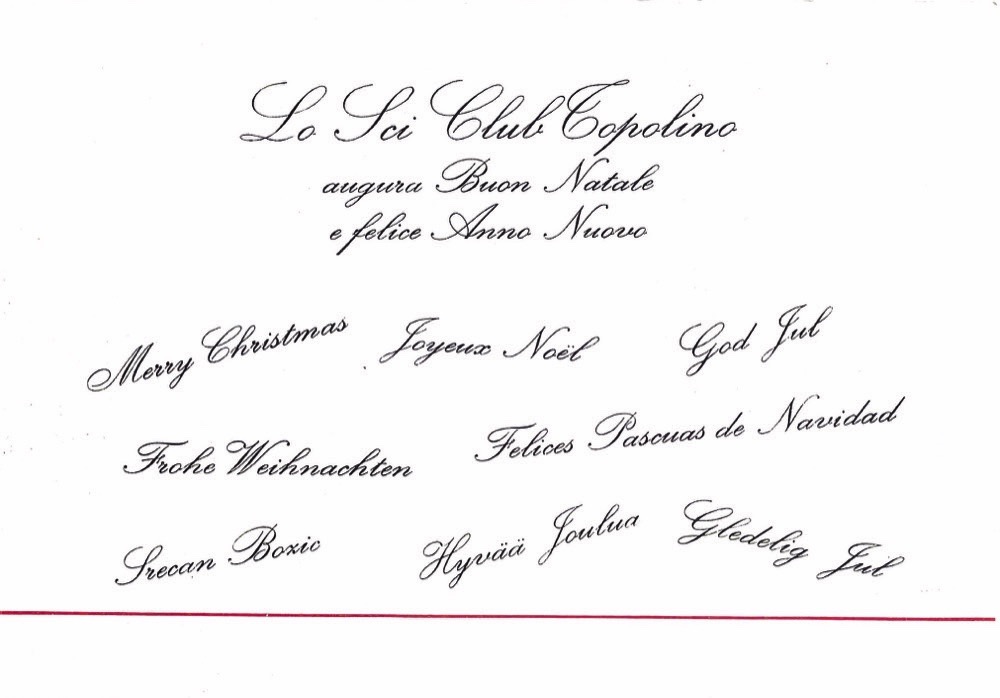 Lo Sci Club Topolino
augura Buon Natale
e felice Anno Nuovo
Merry Christmas
Joyeux Noël
God Jul
Frohe Weihnachten
Felices Pascuas de Navidad
Srecan Bozic
Hyvää Joulua
Gledelig Jul